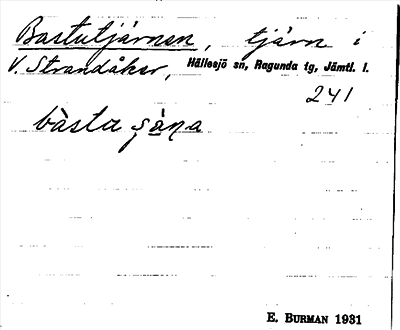 Bastutjärnen, tjärn i
V. Strandåker, Hällesjö sn, Ragunda tg, Jämtl. l.
241
bàsta
E. BURMAN 1931